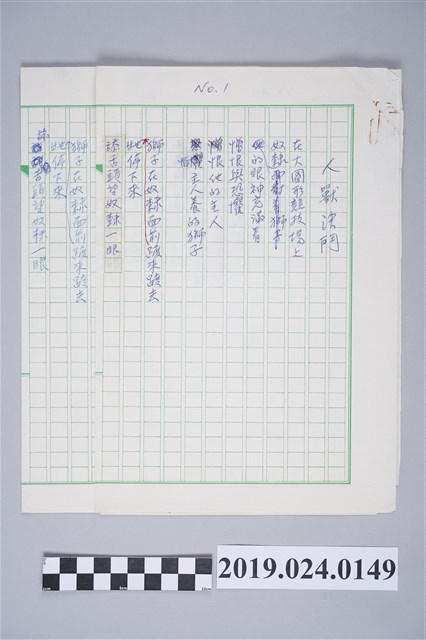 No.1
人獸決鬥
在大圓形競技場上
奴隸面對著獅子
他的眼神充滿著
憎恨與恐懼
憎恨他的主人
主人養的獅子
獅子在奴隸面前踱來踱去
牠停下來
舔舌頭望奴隸一眼
獅子在奴隸面前踱來踱去
牠停下來
舌頭望奴隸一眼
2019.024.0149